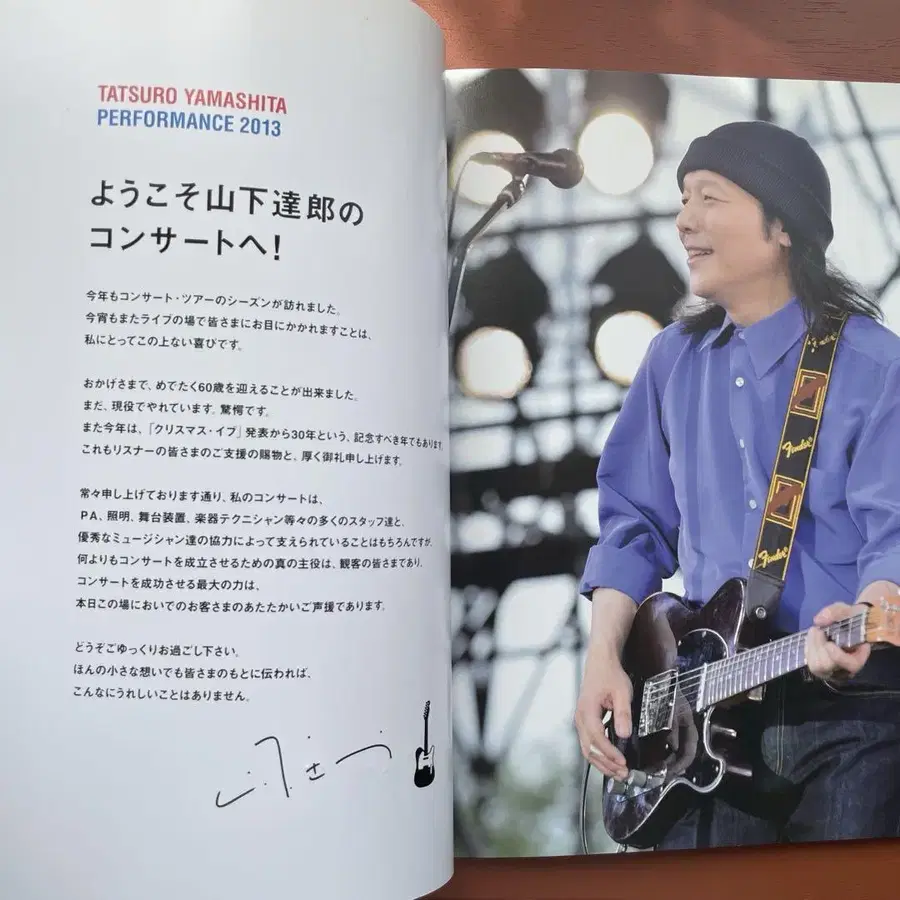 TATSURO YAMASHITA
PERFORMANCE 2013
ようこそ山下達郎の
コンサートへ!
今年もコンサート・ツアーのシーズンが訪れました。
今宵もまたライブの場で皆さまにお目にかかれますことは、
私にとってこの上ない喜びです。
おかげさまで、めでたく60歳を迎えることが出来ました。
まだ、現役でやれています。驚愕です。
また今年は、「クリスマス・イブ」発表から30年という、記念すべき年でもあります。
これもリスナーの皆さまのご支援の賜物と、厚く御礼申し上げます。
常々申し上げております通り、私のコンサートは、
PA、照明、舞台装置、楽器テクニシャン等々の多くのスタッフ達と、
優秀なミュージシャン達の協力によって支えられていることはもちろんですが、
何よりもコンサートを成立させるための真の主役は、観客の皆さまであり、
コンサートを成功させる最大の力は、
本日この場においてのお客さまのあたたかいご声援であります。
どうぞごゆっくりお過ごし下さい。
ほんの小さな想いでも皆さまのもとに伝われば、
こんなにうれしいことはありません。
Fender
Fender